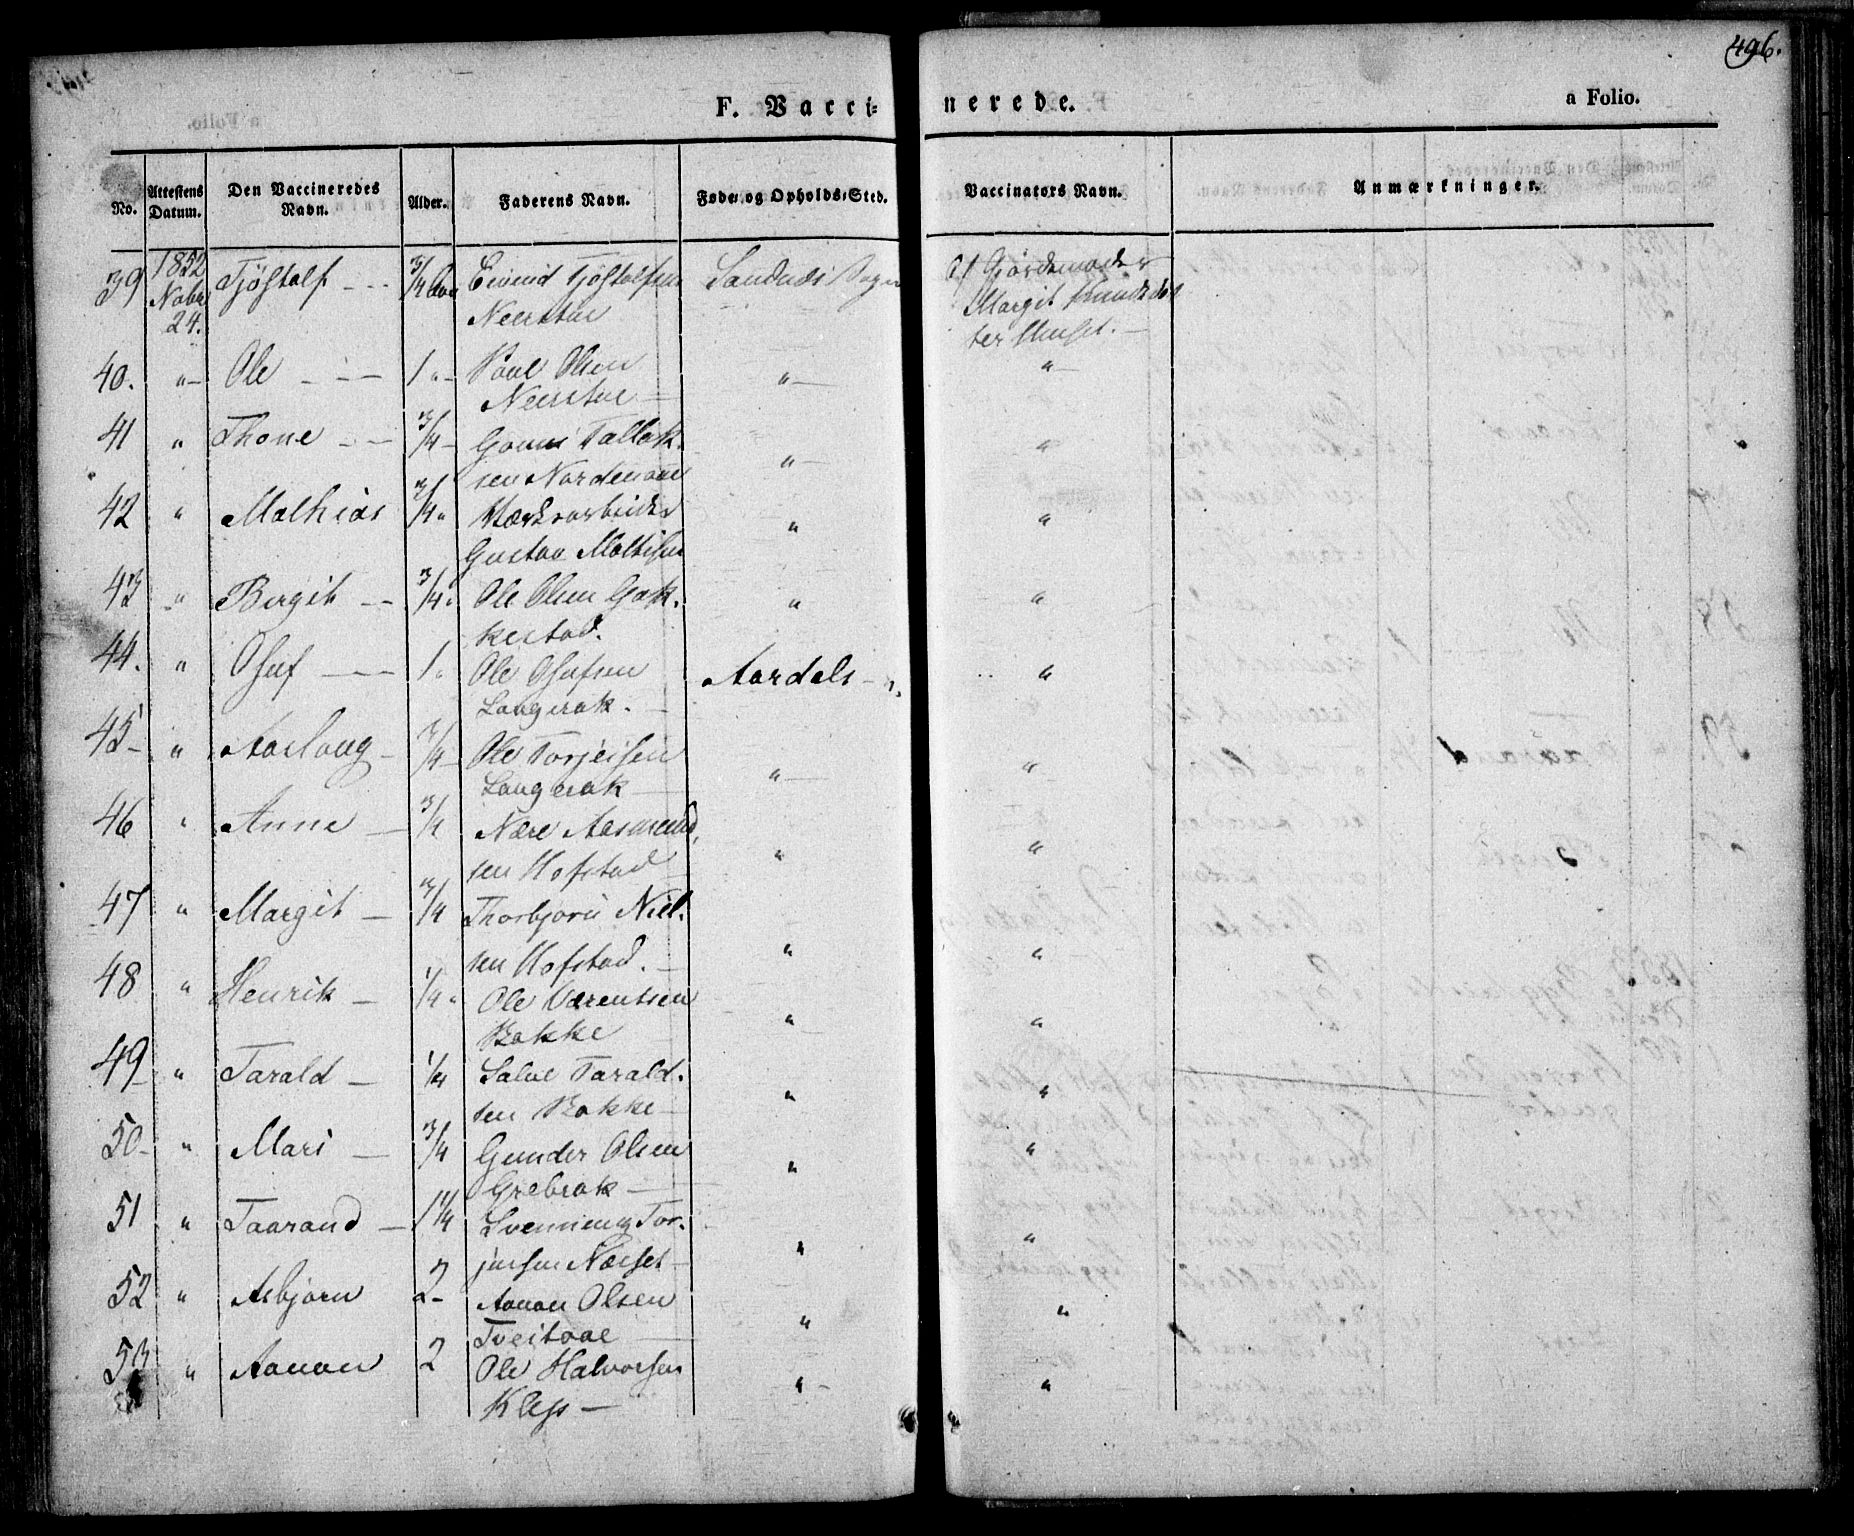 496.
F. Vaccinerede.
a Folio.
No. Attestens Datum. Den Vaccineredes Navn. Alder. Faderens Navn. Føde- og Opholds-Sted. Vaccinators Navn. Anmærkninger.
39 1852 Novbr 24. Tjøstolf 3/4 Aar Eivind Tjøstolfsen Sandnæs Sogn af Gjordemoder
Neerstue Margit Knudsdat
ter Huset.
40. " Ole 1 " Poul Olsen " "
Neerstue
41 " Thone 3/4 Gouni Tallak- " "
sen Nordenaae
42 " Mathias 3/4 " " "
Gustav Mathisen
43 " Birgit 3/4 " Ole Olsen Gak- " "
kestad.
44. " Osuf 1 " Ole Osufsen Aardals "
Langerak.
45 " Aaslaug 3/4 Ole Torjeisen " "
Langerak
46 " Anne 3/4 Nære Aasmund- " "
sen Hofstad
47 " Margit 3/4 Thorbjorn Niel- " "
sen Hofstad.
48 " Henrik 1/4 " Ole Værentsen " "
Bakke
49 " Tarald 1/4 Salve Tarald- " "
sen Bakke
50 " Mari 3/4 Gunder Olsen " "
Grebrak
51 " Taarand 1 1/4 Svenning Tor- " "
jusen Næset
52 " Asbjørn 2 Aanon Olsen " "
Tveitaae
53 " Aanon 2 Ole Halvorsen " "
Klep